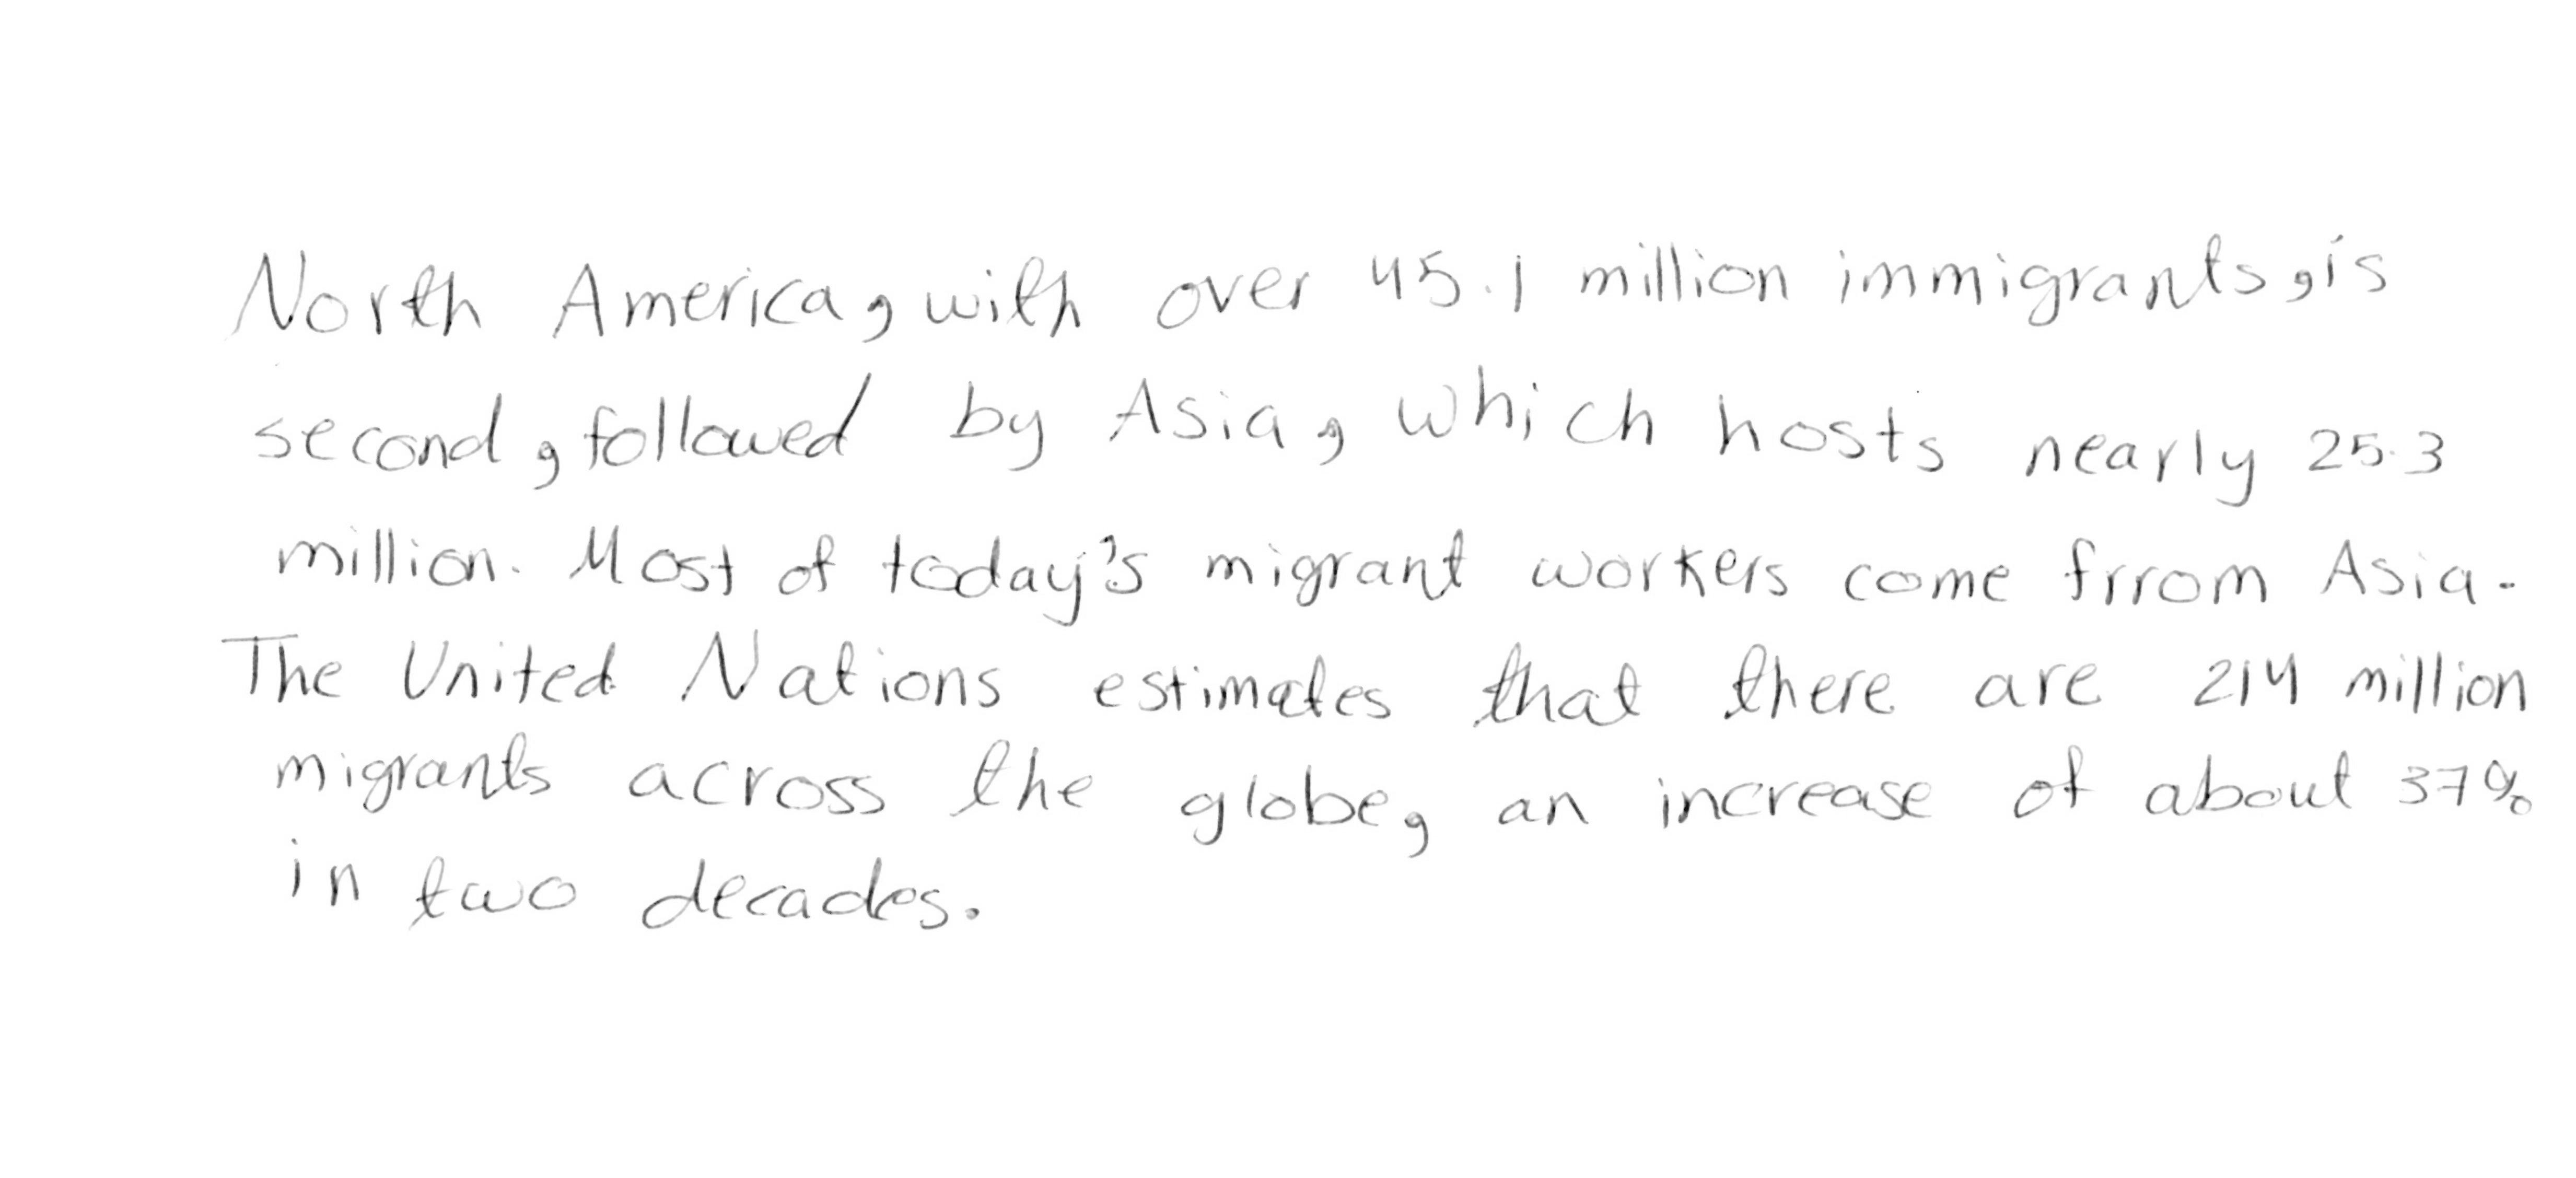 North America, with over 45.1 million immigrants, is
second, followed by Asia, which hosts nearly 25.3
million. Most of today's migrant workers come frrom Asia.
The United Nations estimates that there are 214 million
migrants across the globe, an increase of about 37%
in two decades.